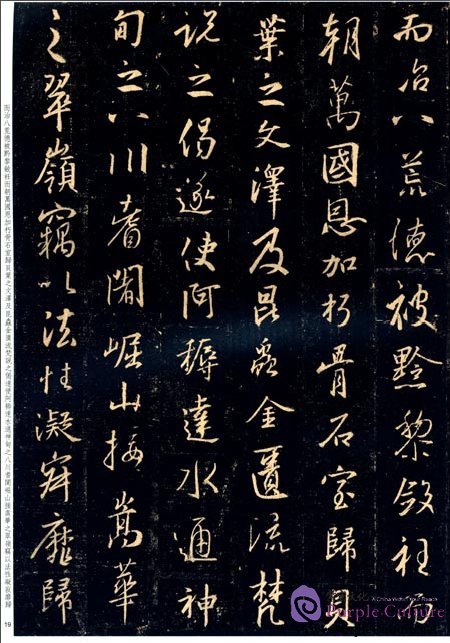 而治八荒德被黔黎斂衽而
朝萬國恩加朽骨石室歸貝
葉之文澤及昆蟲金匱流梵
說之偈遂使阿耨達水通神
甸之八川耆闍崛山接嵩華
之翠嶺竊以法性凝寂靡歸
而治八荒德被黔黎斂衽而朝萬國恩加朽骨石室歸貝葉之文澤及昆蟲金匱流梵說之偈遂使阿耨達水通神甸之八川耆闍崛山接嵩華之翠嶺竊以法性凝寂靡歸
19
Purple Culture